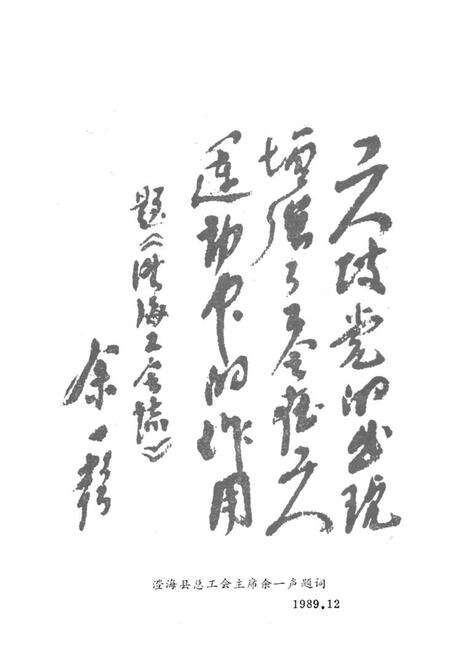 工人政党的出现
增强了工会在工人
運动中的作用
题《澄海工会志》
余一声
澄海县总工会主席余一声题词
1989.12